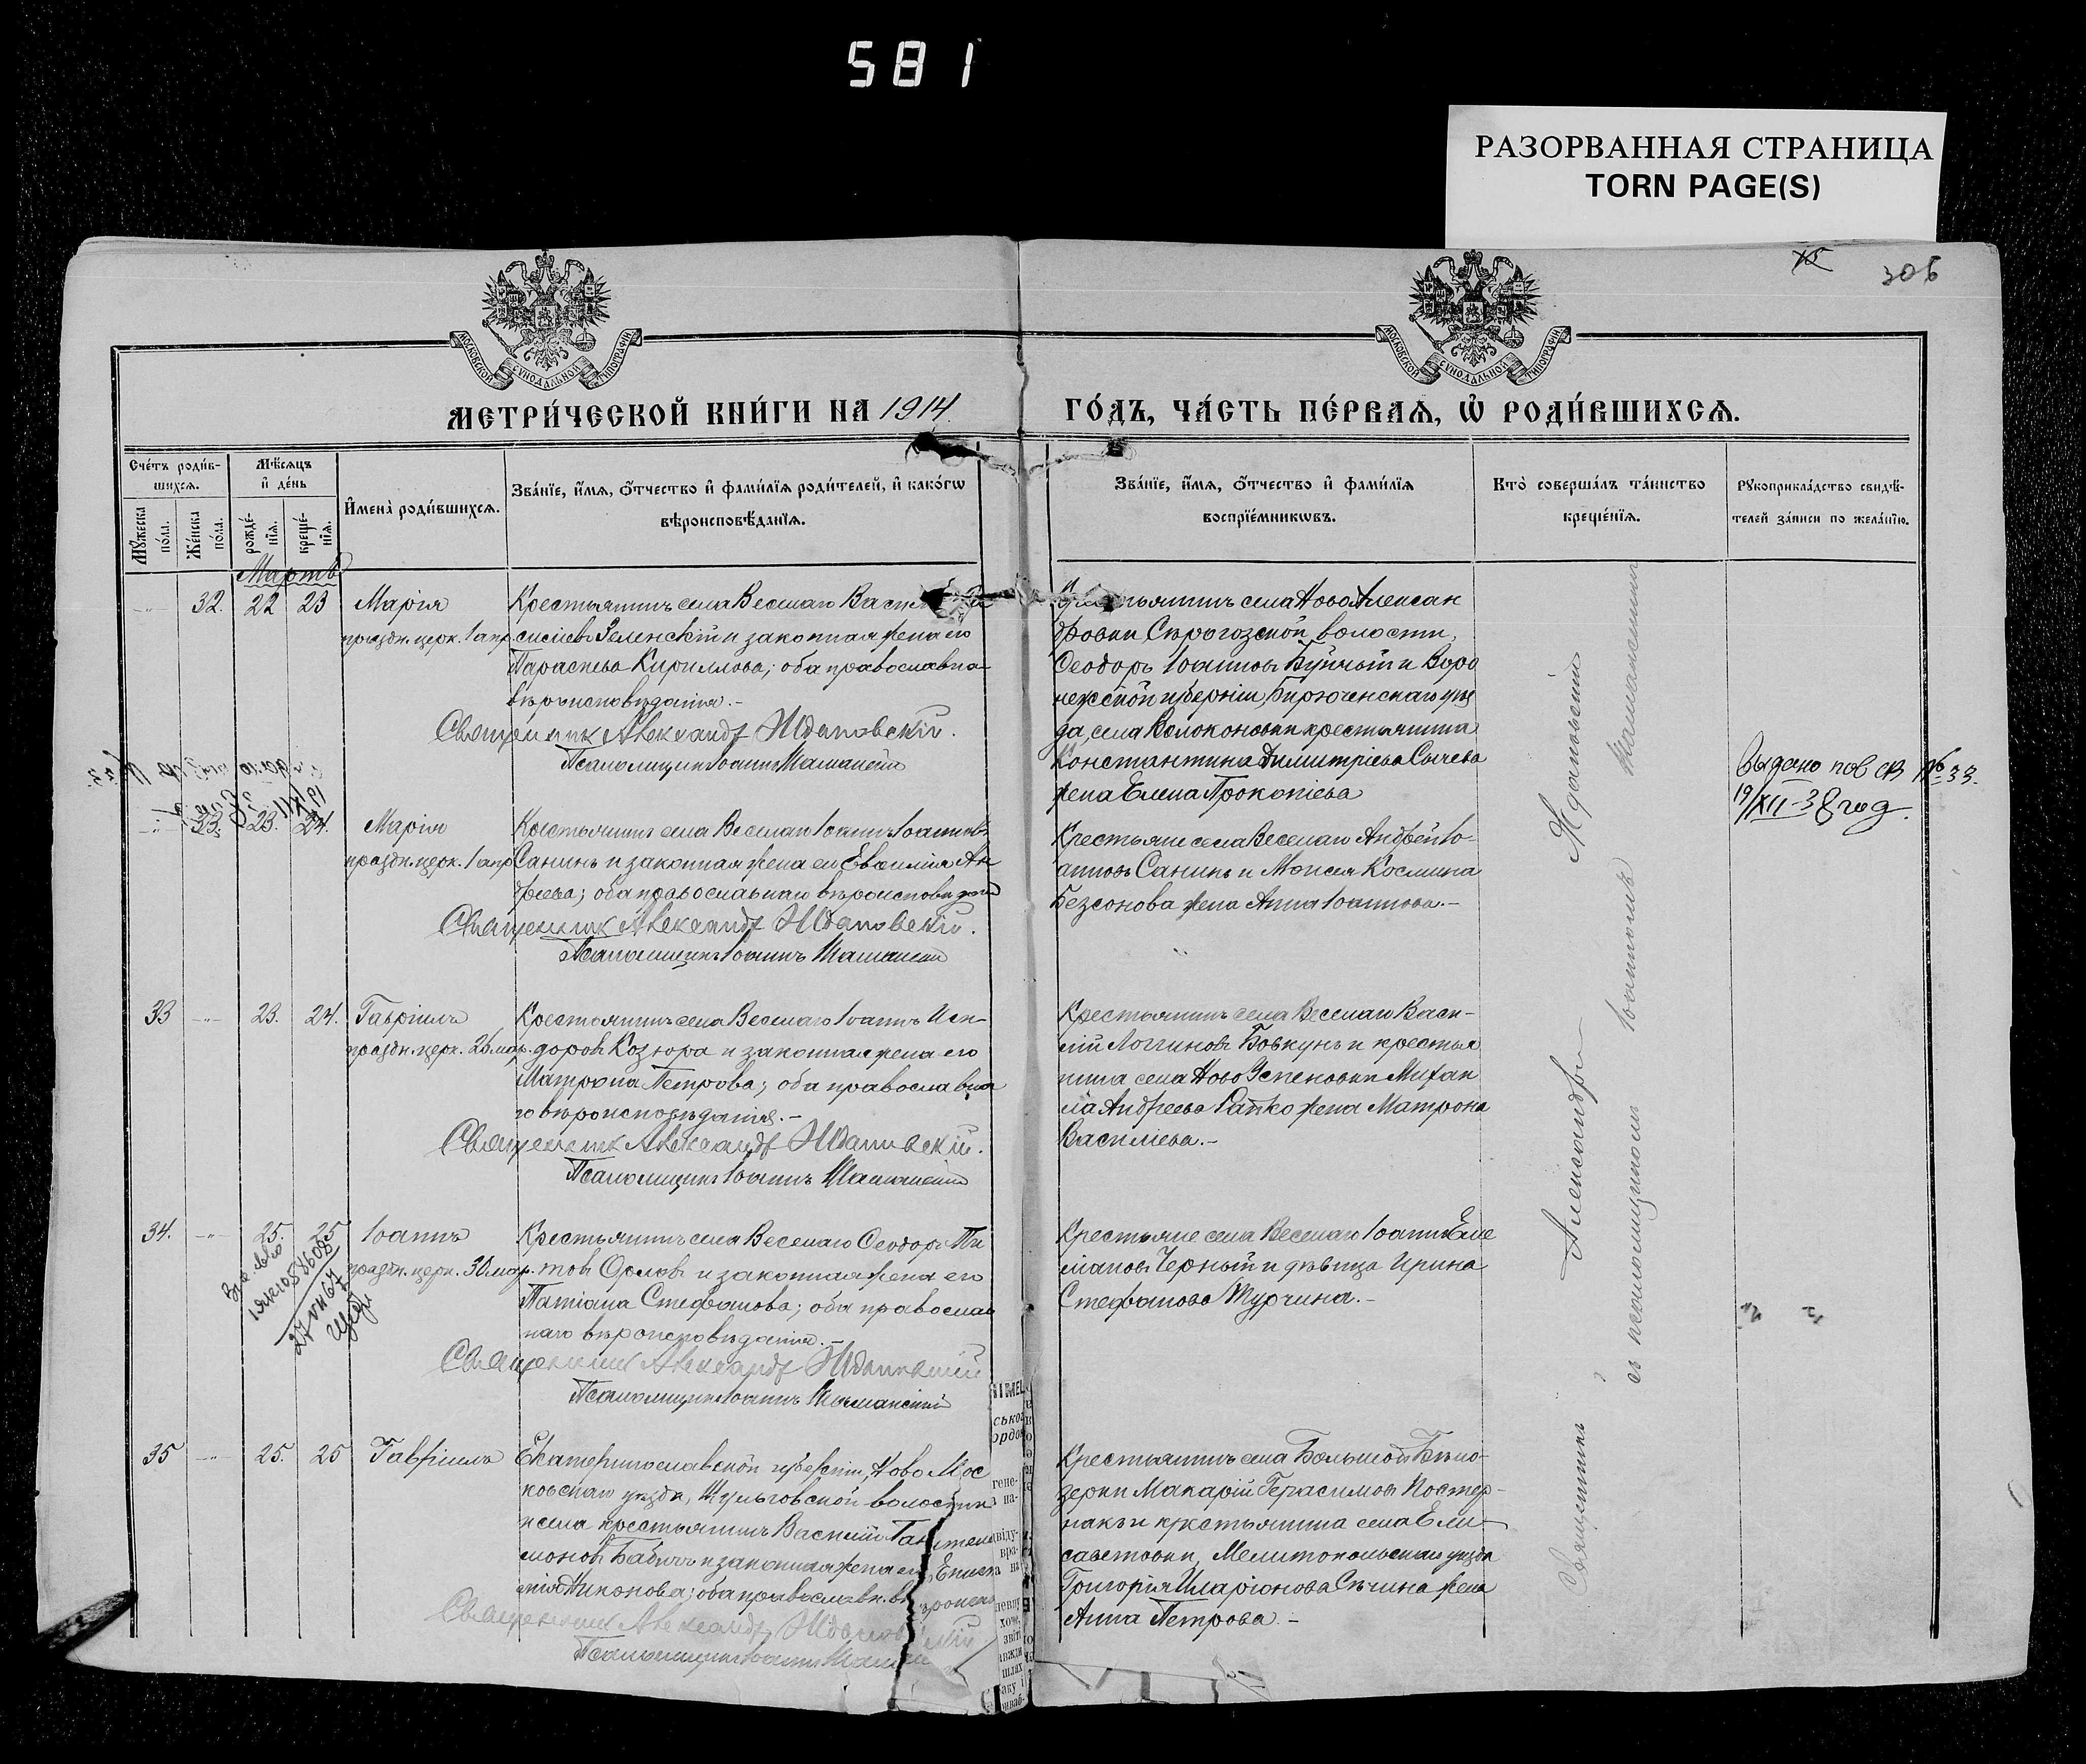 581
РАЗОРВАННАЯ СТРАНИЦА
TORN PAGE(S)
306
МОСКОВСКОЙ СѴНОДАЛЬНОЙ ТИПОГРАФІИ
МОСКОВСКОЙ СѴНОДАЛЬНОЙ ТИПОГРАФІИ
МЕТРИ́ЧЕСКОЙ КНИ́ГИ НА 1914
ГО́ДЪ, ЧА́СТЬ ПЕ́РВАЯ, Ѡ РОДИ́ВШИХСЯ.
Сче́тъ роди́в-
шихся.
Мѣ́сяцъ
и де́нь
Му́жеска по́ла.
Же́нска по́ла.
рожде́-нїя.
креще́-нїя.
Имена̀ роди́вшихся.
Зва́нїе, и́мя, о́тчество и фами́лїя роди́телей, и како́гѡ
вѣроисповѣ́данїя.
Зва́нїе, и́мя, о́тчество и фами́лїя
воспрїе́мникѡвъ.
Кто̀ соверша́лъ та́инство
креще́нїя.
Рукоприкла́дство свидѣ́-
телей за́писи по жела́нїю.
Мартъ
32. 22 23 Марія
праздн. церк. 1 апр.
Крестьянинъ села Веселаго
Зеленскій и законная жена его
Параскева Кириллова; оба православна-
вѣроисповѣданія.-
Священникъ Александръ Ждановскій.
Псаломщикъ Іоаннъ
села НовоАлексан
дровки Сѣрогозской волости,
Ѳеодоръ Іоанновъ и Воро
нежской губерніи, Бирюченскаго уѣз
да, села Волоконовки крестьянина
Константина Димитріева Сычева
жена Елена Прокопіева
Выдано пов св № 33.
19/XII-38 год.
33. 23. 24. Марія
праздн. церк. 1 апр
Крестьянинъ села Веселаго Іоаннъ Іоанновъ
Санинъ и законная жена его Евѳимія Ан
дреева; оба православнаго вѣроисповѣданія
Священникъ Александръ Ждановскій.
Псаломщикъ Іоаннъ
Крестьяне села Веселаго Андрей Іо-
анновъ Санинъ и Моисея Космина
Безсонова жена Анна Іоаннова.-
33 23. 24. Гавріилъ
праздн. церк. 26 мар.
Крестьянинъ села Веселаго Іоаннъ Иси-
доровъ Козюра и законная жена его
Матрона Петрова; оба православна
го вѣроисповѣданія.-
Священникъ Александръ Ждановскій.
Псаломщикъ Іоаннъ
Крестьянинъ села Веселаго Васи-
лій Логгиновъ Бовкунъ и крестья
нина села НовоУспеновки Михаи
ла Андреева жена Матрона
Василіева.-
34. 25. 25 Іоаннъ
праздн. церк. 30 мар.
27 VII 67
Крестьянинъ села Веселаго Ѳеодоръ Ти
товъ Орловъ и законная жена его
Татіана Стефанова; оба православ
наго вѣроисповѣданія.-
Священникъ Александръ Ждановскій
Псаломщикъ Іоаннъ
Крестьяне села Веселаго Іоаннъ Еме
ліановъ Черный и дѣвица Ирина
Стефанова Турчина.-
35 25. 25 Гавріилъ
Екатеринославской губерніи, Ново Мос
ковскаго уѣзда, волости
села крестьянинъ Василій
Бабичъ и законная жена его
Никонова; оба православн. вѣроиспов
Священникъ Александръ Ждановскій
Псаломщикъ Іоаннъ
Крестьянинъ села Большой Бѣло-
зерки Макарій Герасимовъ Постер-
накъ и крестьянина села Ели-
саветовки, Мелитопольскаго уѣзда
Григорія Иларіонова Сѣчина жена
Анна Петрова.-
Священникъ Александръ Ждановскій
съ псаломщикомъ Іоанномъ